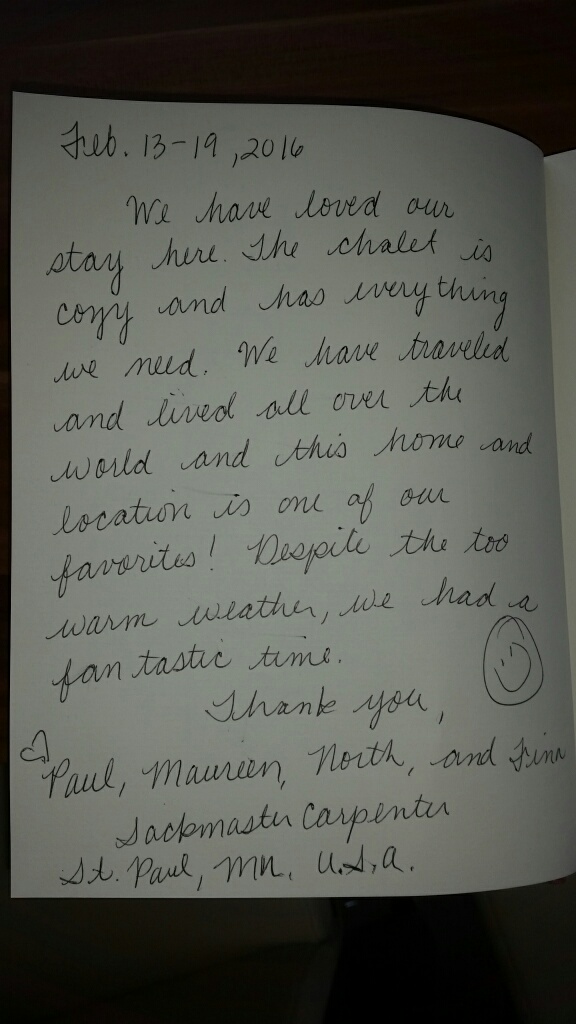 Feb. 13-19, 2016
We have loved our
stay here. The chalet is
cozy and has everything
we need. We have traveled
and lived all over the
world and this home and
location is one of our
favorites! Despite the too
warm weather, we had a
fantastic time.
Thank you,
Paul, Maureen, North, and Finn
Sackmaster Carpenter
St. Paul, MN. U.S.A.